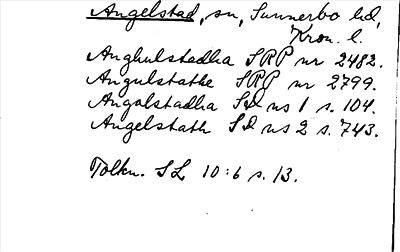 Angelstad, sn, Sunnerbo hd,
Kron. l.
Anghulstadha SRP nr 2482.
Angulstathe SRP nr 2799.
Angalstadha SD ns 1 s. 104.
Angelstath SD ns 2 s. 743.
Tolkn. SL 10:6 s. 13.